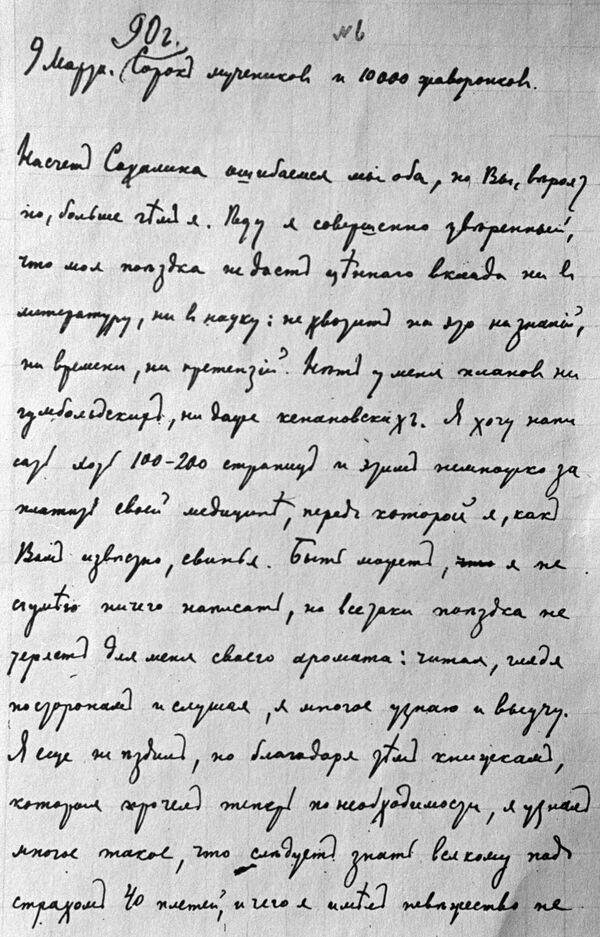 90 г.
№6
9 Марта. Сорокъ мучениковъ и 10000 жаворонковъ.
Насчетъ Сахалина ошибаемся мы оба, но Вы, вѣроят
но, больше чѣмъ я. Ѣду я совершенно увѣренный,
что моя поѣздка не дастъ цѣннаго вклада ни въ
литературу, ни въ науку: не хватитъ на это ни знаній,
ни времени, ни претензій. Нѣтъ у меня плановъ ни
гумбольдскихъ, ни даже кенановскихъ. Я хочу напи
сать хоть 100-200 страницъ и этимъ немножко за
платить своей медицинѣ, передъ которой я, какъ
Вамъ извѣстно, свинья. Быть можетъ, что я не
сумѣю ничего написать, но всетаки поѣздка не
теряетъ для меня своего аромата: читая, глядя
по сторонамъ и слушая, я многое узнаю и выучу.
Я еще не ѣздилъ, но благодаря тѣмъ книжкамъ,
которыя прочелъ теперь по необходимости, я узналъ
многое такое, что слѣдуетъ знать всякому подъ
страхомъ 40 плетей, и чего я имѣлъ невѣжество не